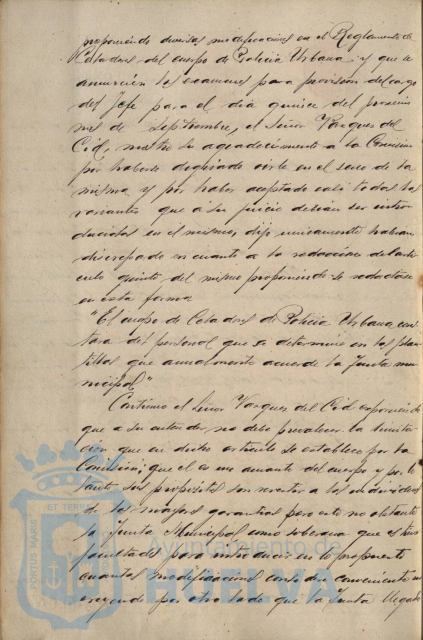 proponiendo diversas modificaciones en el Reglamento de
Celadores del cuerpo de Policia Urbana y que se
anuncien los examenes para provision del cargo
del Jefe para el dia quince del proximo
mes de Septiembre, el Señor Vazquez del
Cid, mostro su agradecimiento a la Comision
por haberse dignado oirle en el seno de la
misma y por haber aceptado casi todas las
variantes que a su juicio debian ser intro
ducidas en el mismo, dijo unicamente habian
discrepado en cuanto a la redaccion del arti
culo quinto del mismo proponiendo se redactase
en esta forma
"El cuerpo de Celadores de Policia Urbana cons
tara del personal que se determine en las plan
tillas que anualmente acuerde la Junta mu
nicipal"
Continuo el Señor Vazquez del Cid exponiendo
que a su entender, no debe prevalecer la limita
cion que en dicho articulo se establece por la
Comision; que el es un amante del cuerpo y por lo
tanto sus propositos son revestir a los individuos
de las mayores garantias pero esto no obstante
la Junta Municipal como soberana que es tiene
facultades para introducir en lo propuesto
cuantas modificaciones considere conveniente no
creyendo por otro lado que la Junta llegase
PORTUS MARIS ET TERRAE
Ayuntamiento de
HUELVA